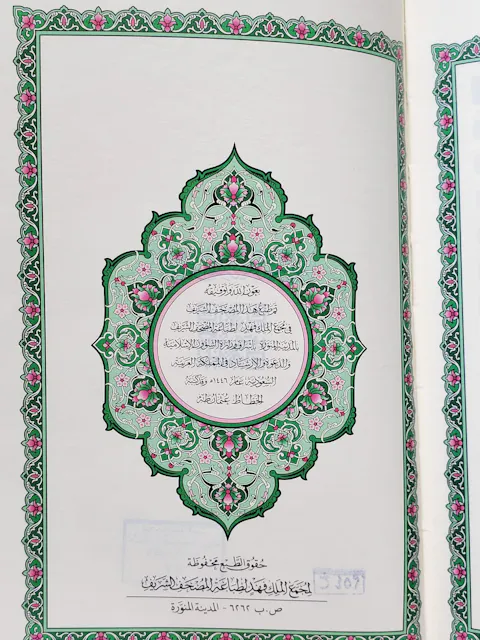 بعون الله وتوفيقه
تم طبع هذا المصحف الشريف
في مجمع الملك فهد لطباعة المصحف الشريف
بالمدينة المنورة بإشراف وزارة الشؤون الإسلامية
والدعوة والإرشاد في المملكة العربية
السعودية عام ١٤٤٦هـ وقد كتبه
الخطاط عثمان طه
حقوق الطبع محفوظة
لمجمع الملك فهد لطباعة المصحف الشريف
ص.ب ٦٢٦٢ - المدينة المنورة